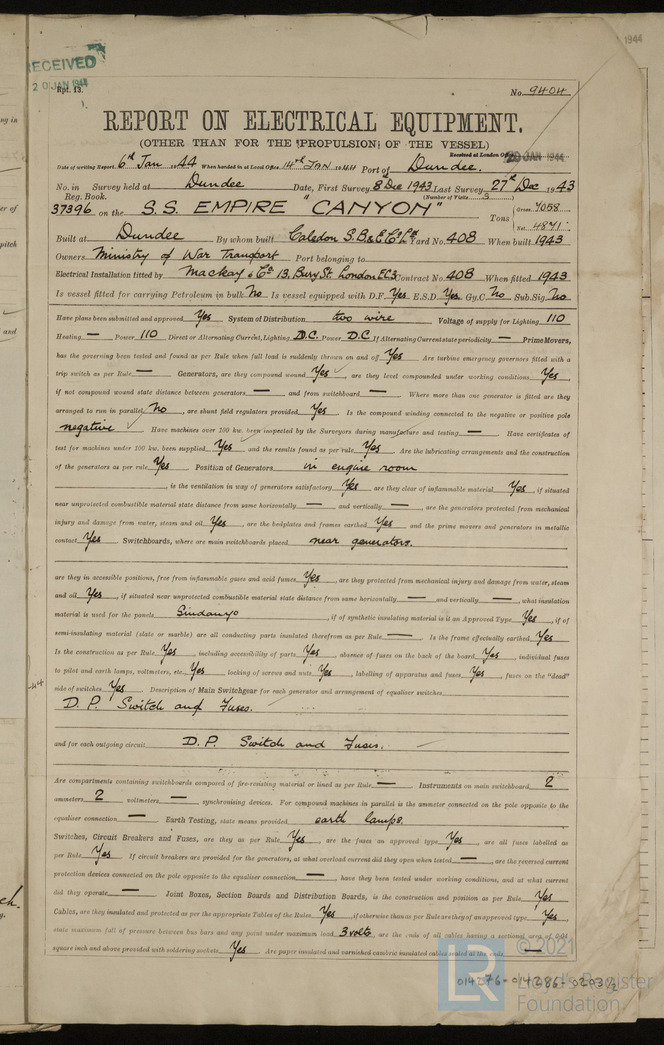 RECEIVED
20 JAN 1944
1944
Rpt. 13.
No. 9404
REPORT ON ELECTRICAL EQUIPMENT.
(OTHER THAN FOR THE PROPULSION OF THE VESSEL)
Received at London Office 20 JAN 1944
Date of writing Report 6th Jan 1944 When handed in at Local Office 14th JAN 1944 Port of Dundee.
No. in Survey held at Dundee Date, First Survey 8th Dec 1943 Last Survey 27th Dec 1943
Reg. Book. (Number of Visits 3)
37396 on the S.S. EMPIRE "CANYON" Tons Gross 7058 Net 4871
Built at Dundee By whom built Caledon S.B. & E. Co. Ld Yard No. 408 When built 1943
Owners Ministry of War Transport Port belonging to
Electrical Installation fitted by Mackay & Co. 13, Bury St. London EC3 Contract No. 408 When fitted 1943
Is vessel fitted for carrying Petroleum in bulk No Is vessel equipped with D.F. Yes E.S.D. Yes Gy.C. No Sub.Sig. No
Have plans been submitted and approved Yes System of Distribution two wire Voltage of supply for Lighting 110
Heating — Power 110 Direct or Alternating Current, Lighting D.C. Power D.C. If Alternating Current state periodicity — Prime Movers,
has the governing been tested and found as per Rule when full load is suddenly thrown on and off Yes Are turbine emergency governors fitted with a
trip switch as per Rule — Generators, are they compound wound Yes, are they level compounded under working conditions Yes,
if not compound wound state distance between generators — and from switchboard — Where more than one generator is fitted are they
arranged to run in parallel No, are shunt field regulators provided Yes Is the compound winding connected to the negative or positive pole
negative Have machines over 200 kw. been inspected by the Surveyors during manufacture and testing — Have certificates of
test for machines under 200 kw. been supplied Yes and the results found as per rule Yes Are the lubricating arrangements and the construction
of the generators as per rule Yes Position of Generators in engine room
is the ventilation in way of generators satisfactory Yes are they clear of inflammable material Yes, if situated
near unprotected combustible material state distance from same horizontally — and vertically —, are the generators protected from mechanical
injury and damage from water, steam and oil Yes, are the bedplates and frames earthed Yes and the prime movers and generators in metallic
contact Yes Switchboards, where are main switchboards placed near generators.
are they in accessible positions, free from inflammable gases and acid fumes Yes, are they protected from mechanical injury and damage from water, steam
and oil Yes, if situated near unprotected combustible material state distance from same horizontally — and vertically —, what insulation
material is used for the panels Sindanyo, if of synthetic insulating material is it an Approved Type Yes, if of
semi-insulating material (slate or marble) are all conducting parts insulated therefrom as per Rule — Is the frame effectually earthed Yes
Is the construction as per Rule Yes, including accessibility of parts Yes, absence of fuses on the back of the board Yes, individual fuses
to pilot and earth lamps, voltmeters, etc., Yes, locking of screws and nuts Yes, labelling of apparatus and fuses Yes, fuses on the "dead"
side of switches Yes Description of Main Switchgear for each generator and arrangement of equaliser switches
D. P. Switch and Fuses.
and for each outgoing circuit D. P. Switch and Fuses.
Are compartments containing switchboards composed of fire-resisting material or lined as per Rule — Instruments on main switchboard 2
ammeters 2 voltmeters — synchronising devices. For compound machines in parallel is the ammeter connected on the pole opposite to the
equaliser connection — Earth Testing, state means provided earth lamps.
Switches, Circuit Breakers and Fuses, are they as per Rule Yes, are the fuses an approved type Yes, are all fuses labelled as
per Rule Yes If circuit breakers are provided for the generators, at what overload current did they open when tested —, are the reversed current
protection devices connected on the pole opposite to the equaliser connection —, have they been tested under working conditions, and at what current
did they operate — Joint Boxes, Section Boards and Distribution Boards, is the construction and position as per Rule Yes
Cables, are they insulated and protected as per the appropriate Tables of the Rules Yes, if otherwise than as per Rule are they of an approved type Yes,
state maximum fall of pressure between bus bars and any point under maximum load 3 volts, are the ends of all cables having a sectional area of 0.04
square inch and above provided with soldering sockets Yes Are paper insulated and varnished cambric insulated cables sealed at the ends —
© 2021
Lloyd's Register
Foundation
LR
014276-014286-0203 1/2